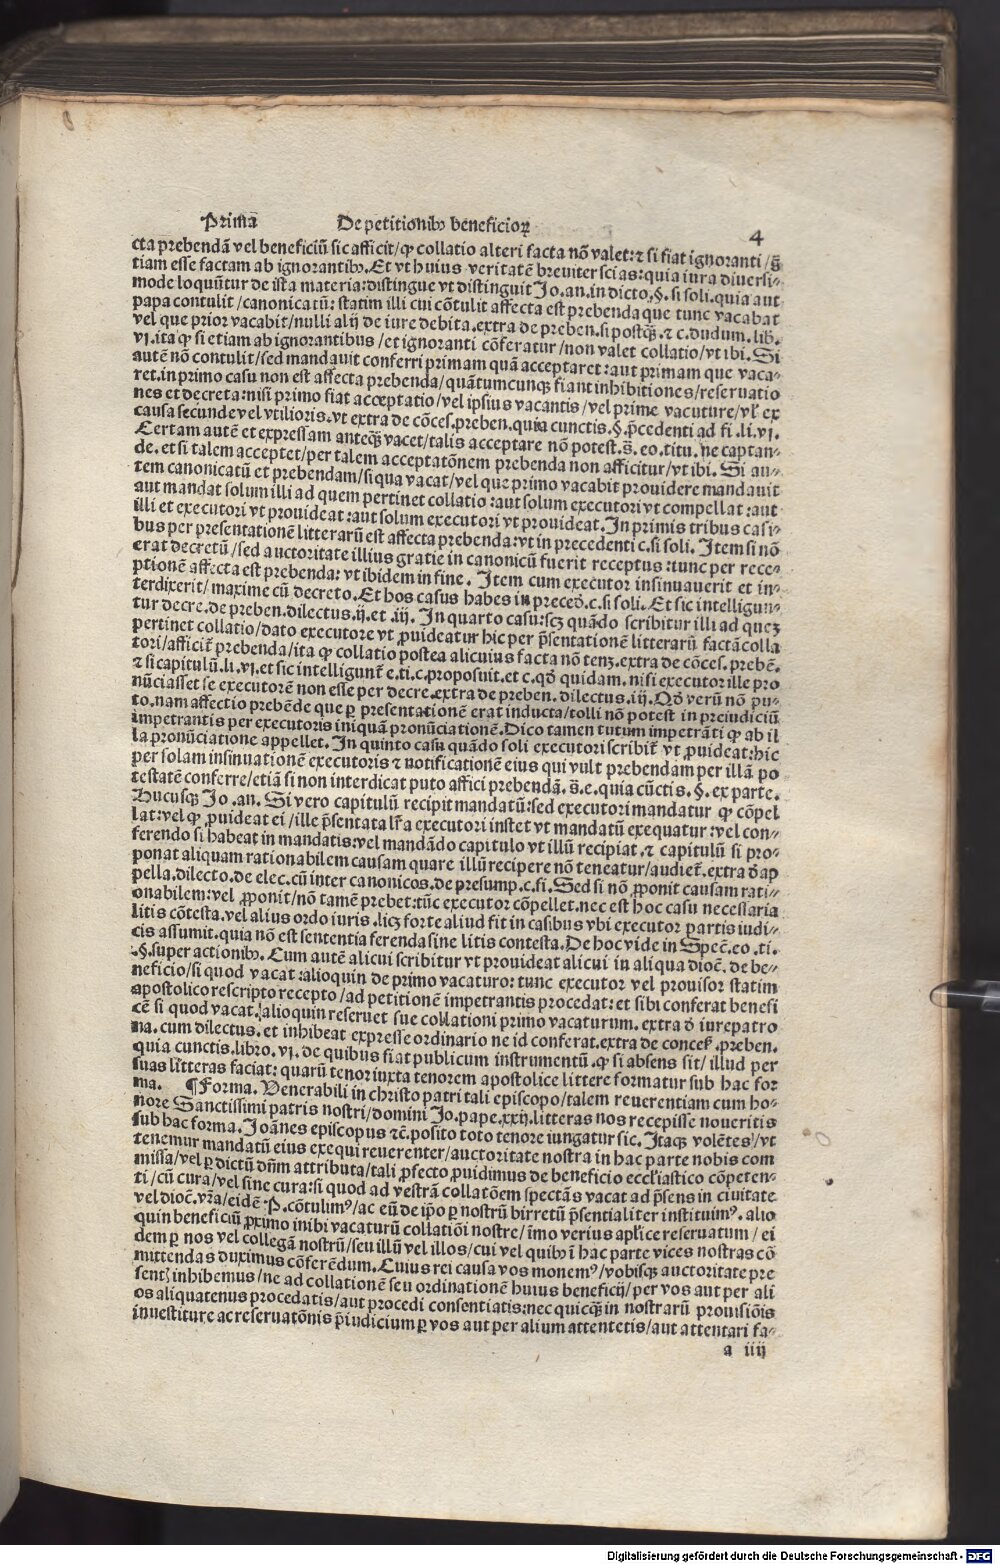 Primā De petitionibꝰ beneficioꝝ 4
cta prebendā vel beneficiū sic afficit/ꝙ collatio alteri facta nō valet: ⁊ si fiat ignoranti/s̄
tiam esse factam ab ignorantibꝰ. Et vt huius veritatē breuiter scias: quia iura diuersi⸗
mode loquūtur de ista materia: distingue vt distinguit Jo. an. in dicto. §. si soli. quia aut
papa contulit/canonicatū: statim illi cui cōtulit affecta est prebenda que tunc vacabat
vel que prior vacabit/nulli alij de iure debita. extra de preben. si postqꝫ. ⁊ c. dudum. lib.
vi. ita ꝙ si etiam ab ignorantibus/et ignoranti cōferatur/non valet collatio/vt ibi. Si
autē nō contulit/sed mandauit conferri primam quā acceptaret: aut primam que vaca⸗
ret. in primo casu non est affecta prebenda/quātumcunqꝫ fiant inhibitiones/reseruatio
nes et decreta: nisi primo fiat acceptatio/vel ipsius vacantis/vel prime vacuture/vl̄ ex
causa secunde vel vtilioris. vt extra de cōces. preben. quia cunctis. §. p̄cedenti ad fi. li. vi.
Certam autē et expressam anteqꝫ vacet/talis acceptare nō potest. s̄. eo. titu. ne captan⸗
de. et si talem acceptet/per talem acceptatōnem prebenda non afficitur/vt ibi. Si au⸗
tem canonicatū et prebendam/si qua vacat/vel que primo vacabit prouidere mandauit
aut mandat solum illi ad quem pertinet collatio: aut solum executori vt compellat: aut
illi et executori vt prouideat: aut solum executori vt prouideat. In primis tribus casi⸗
bus per presentationē litterarū est affecta prebenda: vt in precedenti c. si soli. Item si nō
erat decretū/sed auctoritate illius gratie in canonicū fuerit receptus: tunc per rece⸗
ptionē affecta est prebenda: vt ibidem in fine. Item cum executor insinuauerit et in⸗
terdixerit/maxime cū decreto. Et hos casus habes in preced̄. c. si soli. Et sic intelligun⸗
tur decre. de preben. dilectus. ij. et. iij. In quarto casu: scꝫ quādo scribitur illi ad quez
pertinet collatio/dato executore vt ꝓuideatur hic per p̄sentationē litterarū factā colla
tori/afficit̄ prebenda/ita ꝙ collatio postea alicuius facta nō tenꝫ. extra de cōces. prebē.
⁊ si capitulū. li. vi. et sic intelligunt̄ e. ti. c. proposuit. et c. qd̄ quidam. nisi executor ille pro
nūciasset se executorē non esse per decre. extra de preben. dilectus. iij. Qd̄ verū nō pu⸗
to. nam affectio prebēde que ꝑ presentationē erat inducta/tolli nō potest in preiudiciū
impetrantis per executoris iniquā pronūciationē. Dico tamen tutum impetrāti ꝙ ab il
la pronūciatione appellet. In quinto casu quādo soli executori scribit̄ vt ꝓuideat: hic
per solam insinuationē executoris ⁊ notificationē eius qui vult prebendam per illā po
testatē conferre/etiā si non interdicat puto affici prebendā. s̄. e. quia cūctis. §. ex parte.
Hucusqꝫ Jo. an. Si vero capitulū recipit mandatū: sed executori mandatur ꝙ cōpel
lat: vel ꝙ ꝓuideat ei/ille p̄sentata lr̄a executori instet vt mandatū exequatur: vel con⸗
ferendo si habeat in mandatis: vel mandādo capitulo vt illū recipiat. ⁊ capitulū si pro⸗
ponat aliquam rationabilem causam quare illū recipere nō teneatur/audiet̄. extra d̄ ap
pella. dilecto. de elec. cū inter canonicos. de presump. c. fi. Sed si nō ꝓponit causam rati⸗
onabilem: vel ꝓponit/nō tamē prebet: tūc executor cōpellet. nec est hoc casu necessaria
litis cōtesta. vel alius ordo iuris. licꝫ forte aliud sit in casibus vbi executor partis iudi⸗
cis assumit. quia nō est sententia ferenda sine litis contesta. De hoc vide in Spec̄. eo. ti.
.§. super actionibꝰ. Cum autē alicui scribitur vt prouideat alicui in aliqua dioc̄. de be⸗
neficio/si quod vacat: alioquin de primo vacaturo: tunc executor vel prouisor statim
apostolico rescripto recepto/ad petitionē impetrantis procedat: et sibi conferat benefi
cē si quod vacat. alioquin reseruet sue collationi primo vacaturum. extra d̄ iurepatro
na. cum dilectus. et inhibeat expresse ordinario ne id conferat. extra de concess. preben.
quia cunctis. libro. vi. de quibus fiat publicum instrumentū. ꝙ si absens sit/illud per
suas litteras faciat: quarū tenor iuxta tenorem apostolice littere formatur sub hac for
ma. ¶ Forma. Venerabili in christo patri tali episcopo/talem reuerentiam cum ho⸗
nore Sanctissimi patris nostri/domini Jo. pape. xxij. litteras nos recepisse noueritis
sub hac forma. Joānes episcopus ⁊c̄. posito toto tenore iungatur sic. Itaqꝫ volētes/vt
tenemur mandatū eius exequi reuerenter/auctoritate nostra in hac parte nobis com
missa/vel ꝑ dictū dn̄m attributa/tali ꝓfecto ꝓuidimus de beneficio eccl̄iastico cōpeten⸗
ti/cū cura/vel sine cura: si quod ad vestrā collatōem spectās vacat ad p̄sens in ciuitate
vel dioc̄. vr̄a/eidē. P. cōtulimꝰ/ac eū de ip̄o ꝑ nostrū birretū p̄sentialiter instituimꝰ. alio
quin beneficiū ꝓximo inibi vacaturū collatiōi nostre/imo verius apl̄ice reseruatum/ei
dem ꝑ nos vel collegā nostrū/seu illū vel illos/cui vel quibꝰ ī hac parte vices nostras cō
mittendas duximus cōferēdum. Cuius rei causa vos monemꝰ/vobisqꝫ auctoritate pre
sent̄ inhibemus/ne ad collationē seu ordinationē huius beneficij/per vos aut per ali
os aliquatenus procedatis/aut procedi consentiatis: nec quicqꝫ in nostrarū prouisiōis
inuestiture ac reseruatōnis p̄iudicium ꝑ vos aut per alium attentetis/aut attentari fa⸗
a iiij
Digitalisierung gefördert durch die Deutsche Forschungsgemeinschaft - DFG